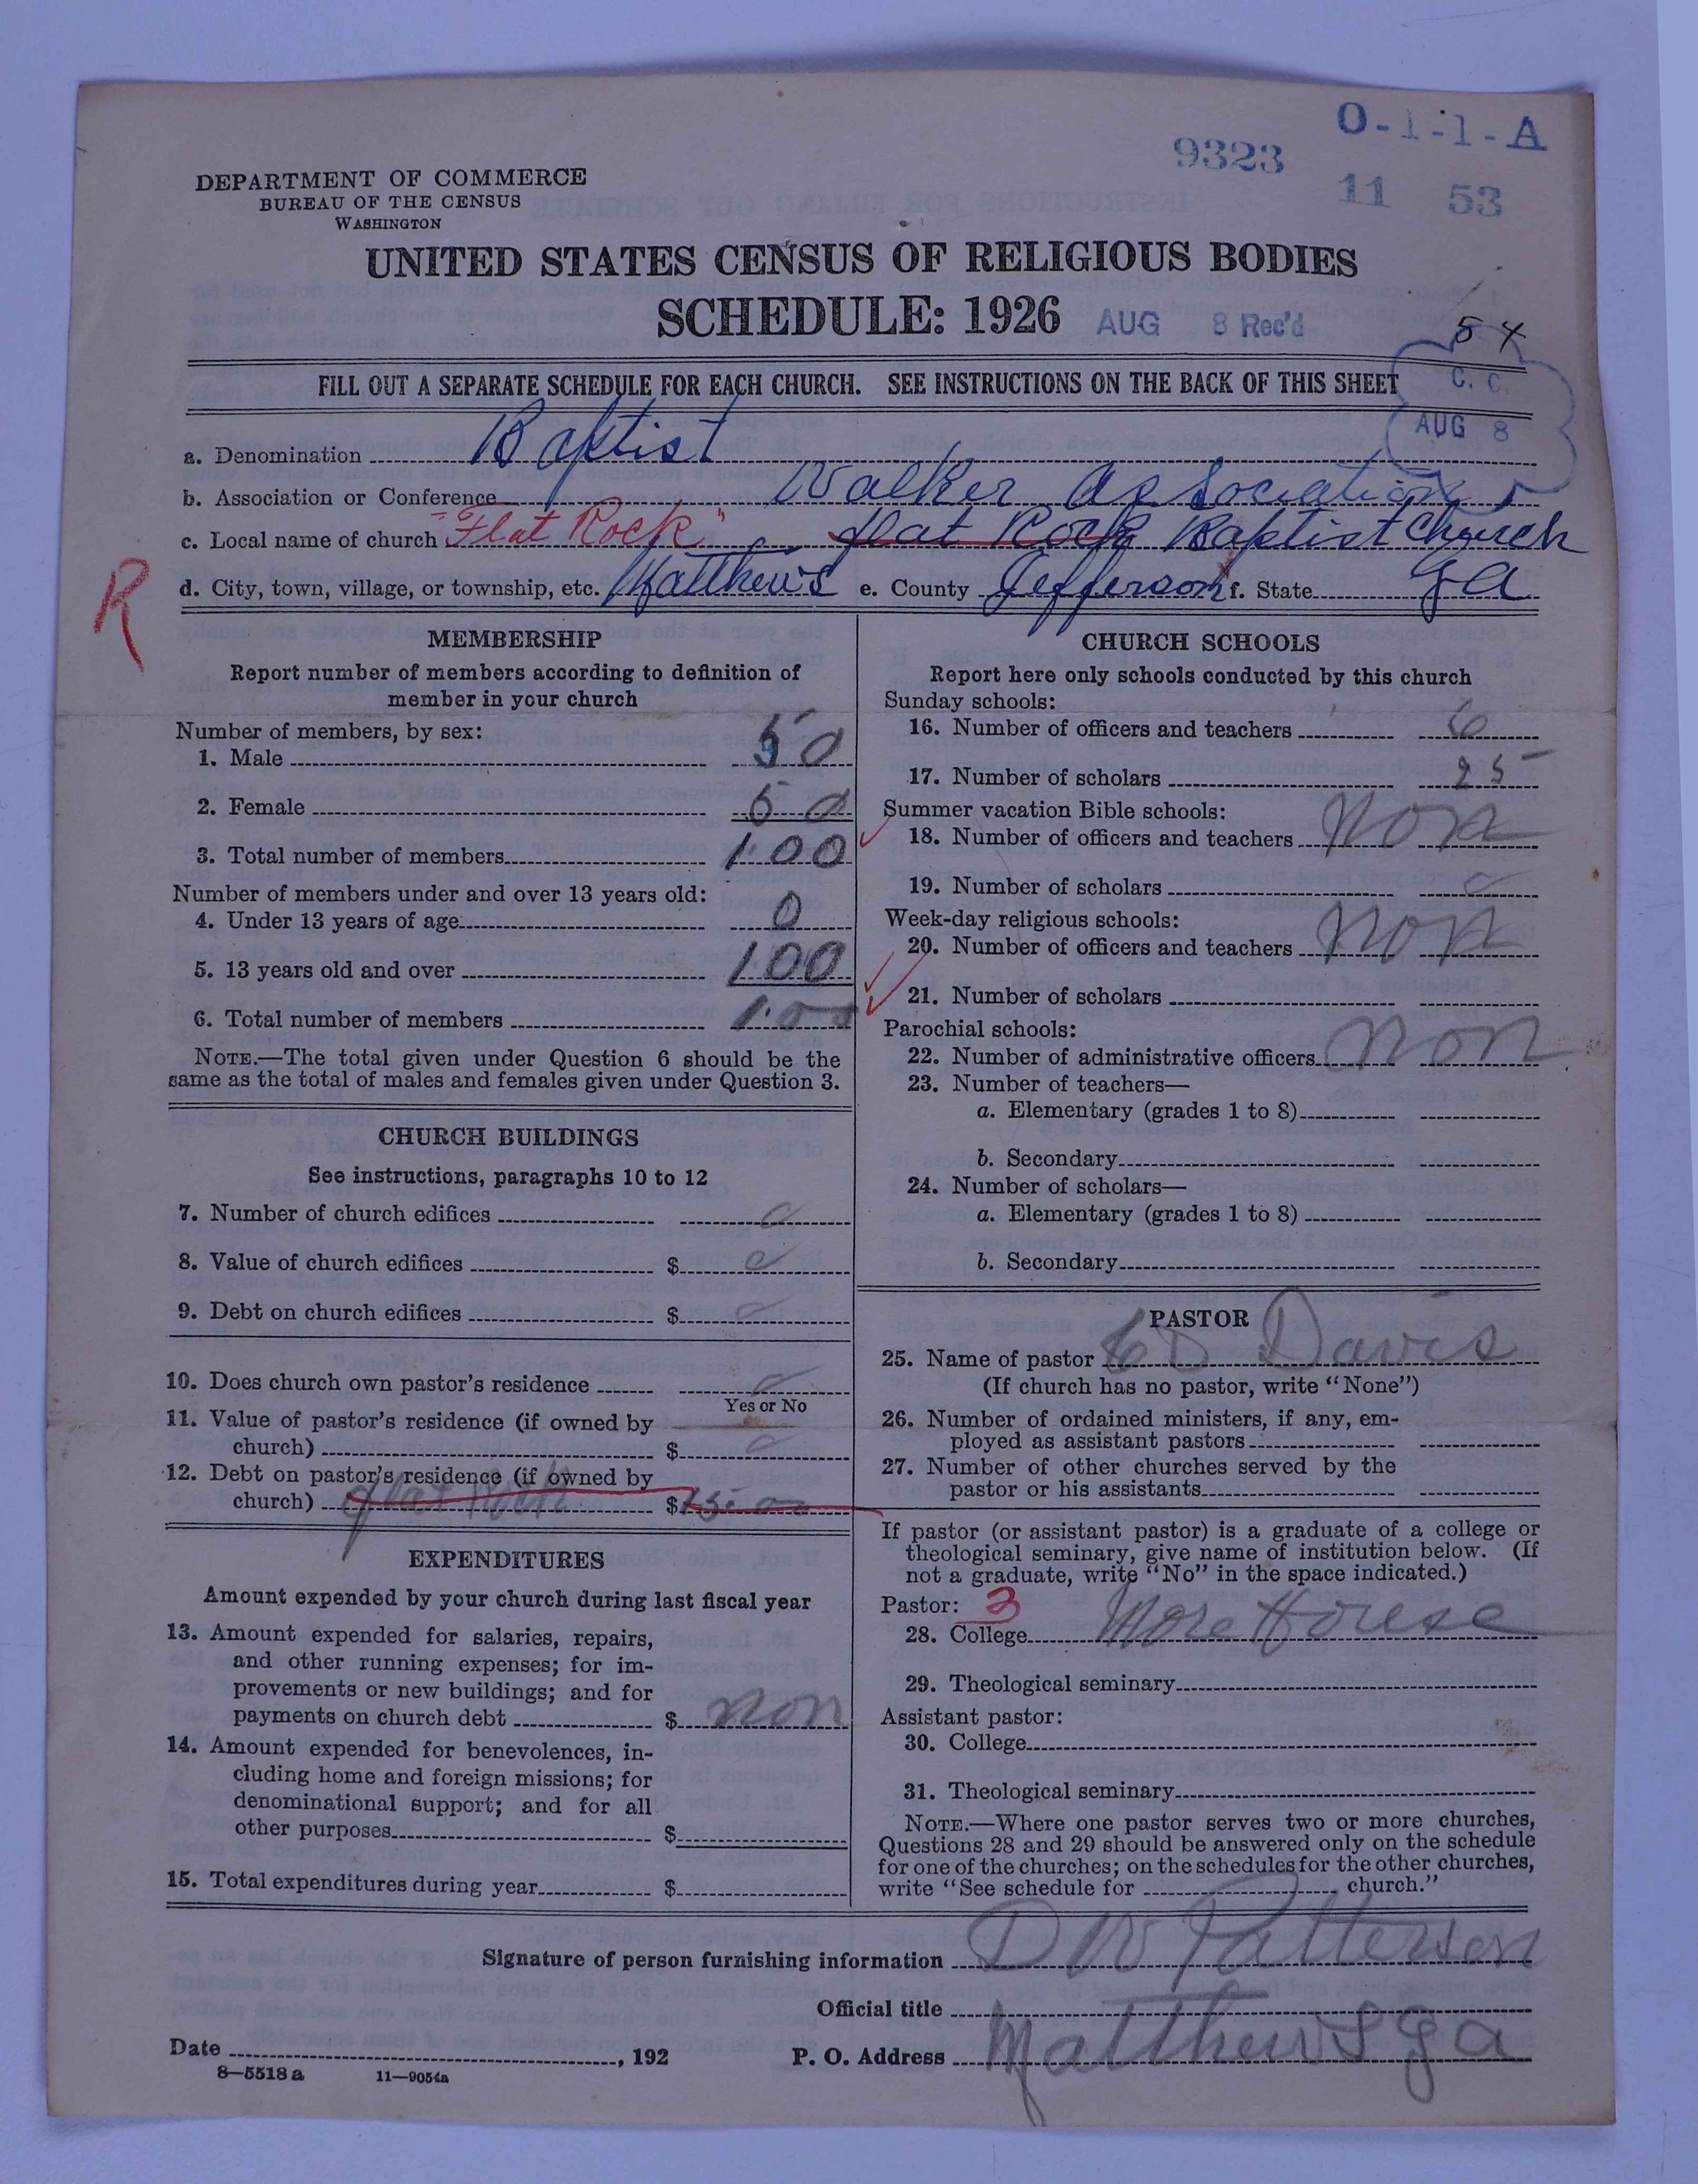 O-1-1-A
9323
11 53
DEPARTMENT OF COMMERCE
BUREAU OF THE CENSUS
WASHINGTON
UNITED STATES CENSUS OF RELIGIOUS BODIES
SCHEDULE: 1926
AUG 8 Rec'd
54
FILL OUT A SEPARATE SCHEDULE FOR EACH CHURCH. SEE INSTRUCTIONS ON THE BACK OF THIS SHEET
C. C.
AUG 8
a. Denomination Baptist
b. Association or Conference Walker Association
c. Local name of church "Flat Rock" flat Rock Baptist Church
R
d. City, town, village, or township, etc. Matthews e. County Jefferson f. State Ga
MEMBERSHIP
Report number of members according to definition of
member in your church
Number of members, by sex:
1. Male 50
2. Female 50
3. Total number of members 100
Number of members under and over 13 years old:
4. Under 13 years of age 0
5. 13 years old and over 100
6. Total number of members 100
NOTE.—The total given under Question 6 should be the
same as the total of males and females given under Question 3.
CHURCH BUILDINGS
See instructions, paragraphs 10 to 12
7. Number of church edifices
8. Value of church edifices $
9. Debt on church edifices $
10. Does church own pastor's residence
Yes or No
11. Value of pastor's residence (if owned by
church) $
12. Debt on pastor's residence (if owned by
church) flat Rock $
EXPENDITURES
Amount expended by your church during last fiscal year
13. Amount expended for salaries, repairs,
and other running expenses; for im-
provements or new buildings; and for
payments on church debt $ non
14. Amount expended for benevolences, in-
cluding home and foreign missions; for
denominational support; and for all
other purposes $
15. Total expenditures during year $
CHURCH SCHOOLS
Report here only schools conducted by this church
Sunday schools:
16. Number of officers and teachers 6
17. Number of scholars 25
Summer vacation Bible schools:
18. Number of officers and teachers non
19. Number of scholars
Week-day religious schools:
20. Number of officers and teachers non
21. Number of scholars
Parochial schools:
22. Number of administrative officers non
23. Number of teachers—
a. Elementary (grades 1 to 8)
b. Secondary
24. Number of scholars—
a. Elementary (grades 1 to 8)
b. Secondary
PASTOR
25. Name of pastor D Davis
(If church has no pastor, write "None")
26. Number of ordained ministers, if any, em-
ployed as assistant pastors
27. Number of other churches served by the
pastor or his assistants
If pastor (or assistant pastor) is a graduate of a college or
theological seminary, give name of institution below. (If
not a graduate, write "No" in the space indicated.)
Pastor: 3
28. College More House
29. Theological seminary
Assistant pastor:
30. College
31. Theological seminary
NOTE.—Where one pastor serves two or more churches,
Questions 28 and 29 should be answered only on the schedule
for one of the churches; on the schedules for the other churches,
write "See schedule for church."
Signature of person furnishing information D W Patterson
Official title
Date , 192 P. O. Address Matthews Ga
8—5518 a 11—9054a